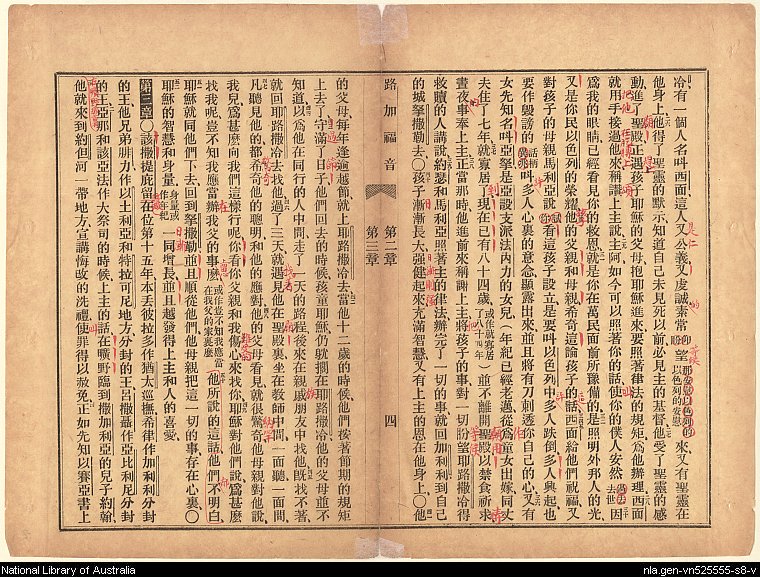 冷有一個人名叫西面這人又公義又虔誠素常盼望
他身上他得了聖靈的默示知道自己未見死以前必見上主的基督他受了聖靈的感
動進了聖殿正遇孩子耶穌的父母抱耶穌進來要照著律法的規矩爲他辦理西面
就用手接過他來稱讚上主說主阿如今可以照著你的話使你的僕人安然去世因
爲我的眼睛已經看見你的救恩就是你在萬民面前所豫備的是照明外邦人的光
又是你民以色列的榮耀他的父親和母親希奇這論孩子的話西面給他們祝福又
對孩子的母親馬利亞說看這孩子設立是要叫以色列中多人跌倒多人興起也
要作毀謗的話柄叫多人心裏的意念顯露出來並且將有刀刺透你自己的心又有
女先知名叫亞拿是亞設支派法內力的女兒年紀已經老邁從爲童女出嫁同丈
夫住了七年就寡居現在已有八十四歲或作就寡居了八十四年並不離開聖殿以禁食祈求
晝夜事奉上主正當那時他進前來稱謝上主將孩子的事對一切盼望耶路撒冷得
救贖的人講說約瑟和馬利亞照著主的律法辦完了一切的事就回加利利到自己
的城拿撒勒去○孩子漸漸長大强健起來充滿智慧又有上主的恩在他身上○他
路加福音
第二章
第三章
四
的父母每年逢逾越節就上耶路撒冷去當他十二歲的時候他們按著節期的規矩
上去了守滿了日子他們回去的時候孩童耶穌仍就擱在耶路撒冷他的父母並不
知道以爲他在同行的人中間走了一天的路程後來在親戚朋友中找他旣找不著
就回耶路撒冷去找他過了三天就遇見他在聖殿裏坐在敎師中間一面聽一面問
凡聽見他的都希奇他的聰明和他的應對他的父母看見就很驚奇他母親對他說
我兒爲甚麼向我們這樣行呢你看你父親和我傷心來找你耶穌對他們說爲甚麼
找我呢豈不知我應當辦我父的事麼或作豈不知我應當在我父的家裏麼他所說的這話他們不明白
耶穌就同他們下去回到拿撒勒並且順從他們他母親把這一切的事存在心裏○
耶穌的智慧和身量身量或作年紀一同增長並且越發得上主和人的喜愛
第三章○該撒提庇留在位第十五年本丟彼拉多作猶太巡撫希律作加利利分封
的王他兄弟腓力作以土利亞和特拉可尼地方分封的王呂撒聶作亞比利尼分封
的王亞那和該亞法作大祭司的時候上主的話在曠野臨到撒加利亞的兒子約翰
他就來到約但河一帶地方宣講悔改的洗禮使罪得以赦免正如先知以賽亞書上
National Library of Australia
nla.gen-vn525555-s8-v